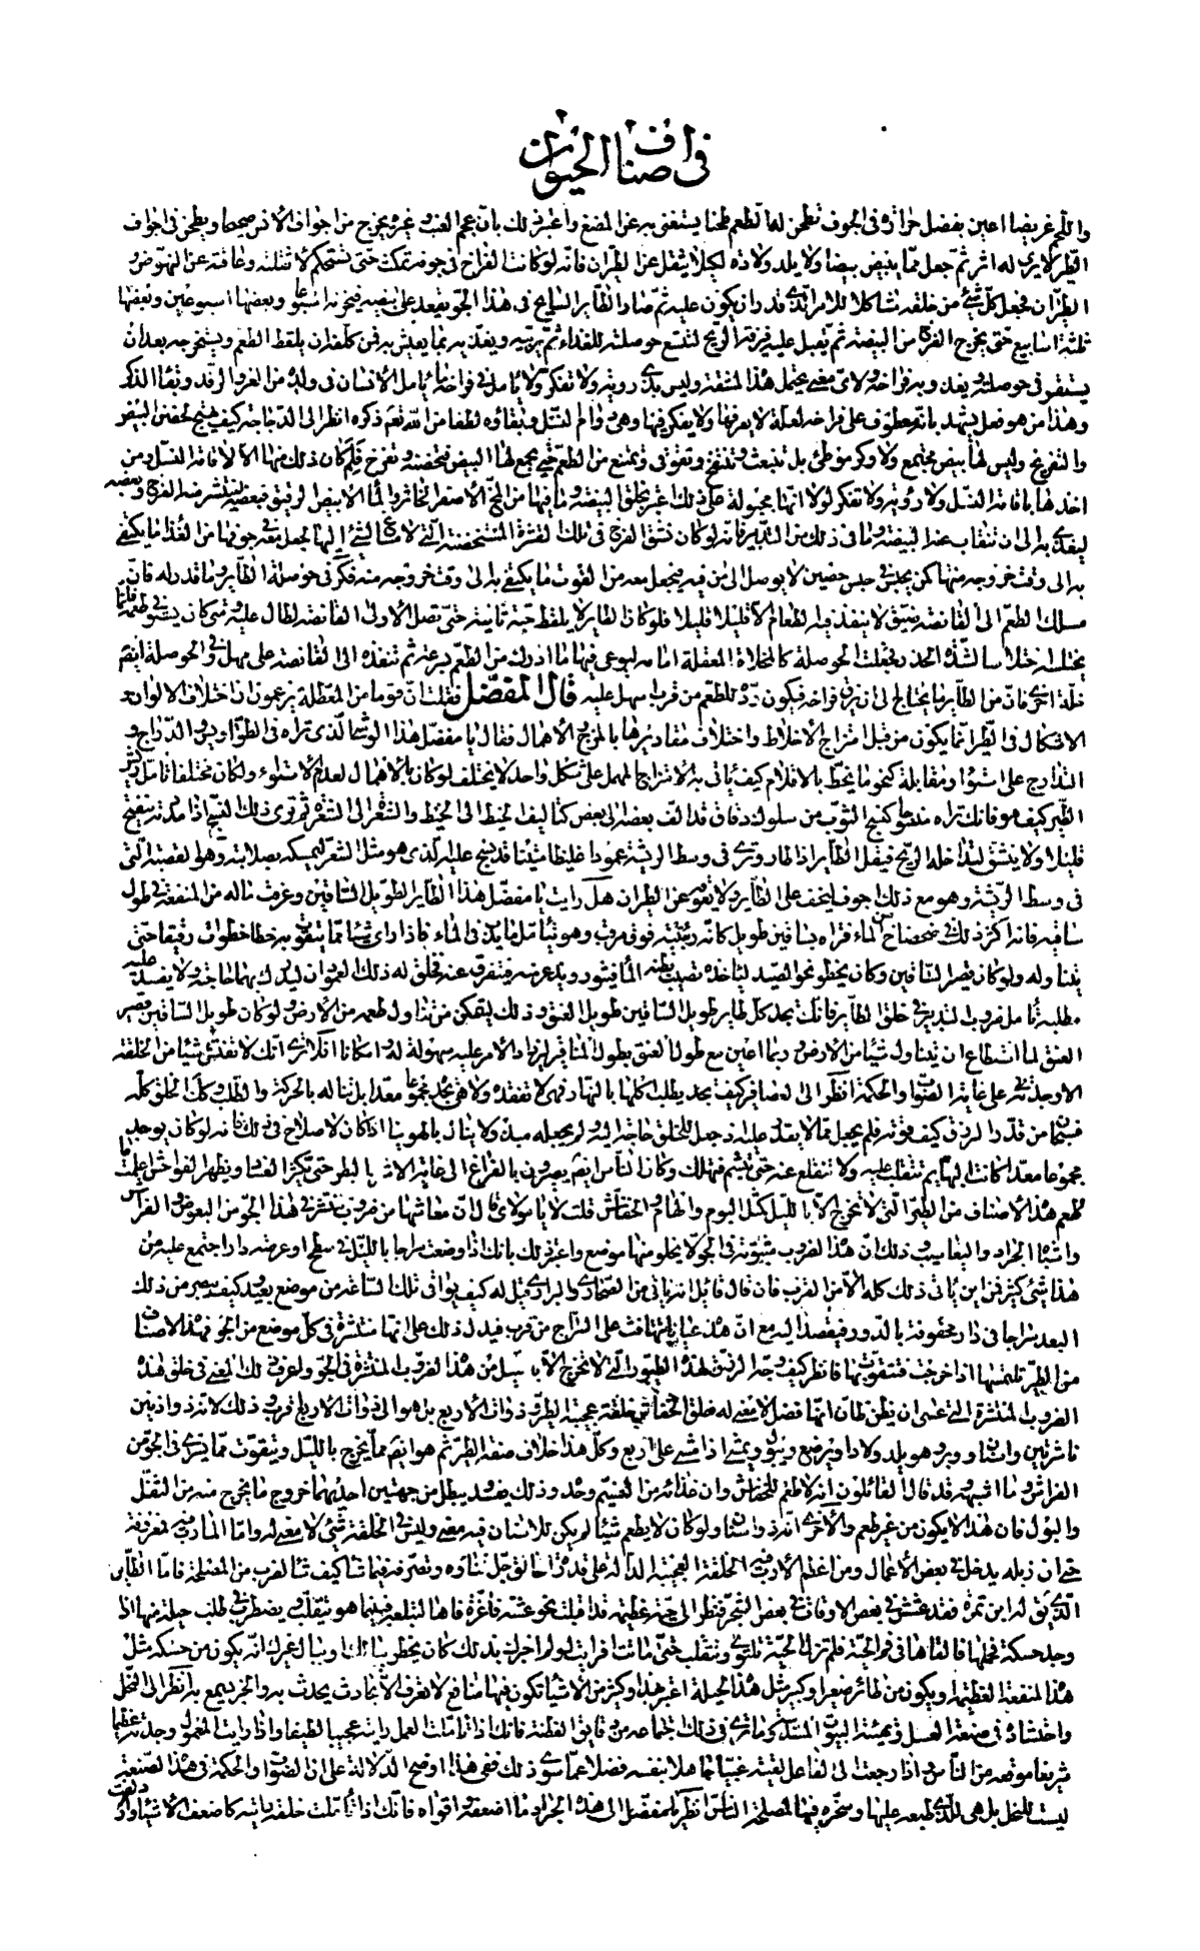 في اصناف الحيوان
واللحم غريضا اعين بفضل حرارة في الجوف تطحن له الطعم طحنا يستغنى به عن المضغ واعتبر ذلك بان عجم العنب وغيره يخرج من اجواف الانس صحيحا ويطحن في اجواف
الطير لا يرى له اثر ثم جعل مما يبيض بيضا ولا يلد ولادة لكيلا يثقل عن الطيران فانه لو كانت الفراخ في جوفه تمكث حتى تستحكم لاثقلته وعاقته عن النهوض و
الطيران فجعل كل شئ من خلقه مشاكلا للامر الذي قدر ان يكون عليه ثم صار الطاير السايح في هذا الجو يقعد على بيضه فيحضنه اسبوعا وبعضها اسبوعين وبعضها
ثلثة اسابيع حتى يخرج الفرخ من البيضة ثم يقبل عليه فيزقه الريح لتتسع حوصلته للغذاء ثم يربيه ويغذيه بما يعيش به فمن كلفه ان يلقط الطعم ويستخرجه بعد ان
يستقر في حوصلته ويغدو به فراخه ولاى معنى يحتمل هذه المشقة وليس بذي روية ولا تفكر ولا يامل في فراخه ما يامل الانسان في ولده من العز والرفد وبقاء الذكر
وهذا من هو فعل يشهد بانه معطوف على فراخه لعلة لا يعرفها ولا يفكر فيها وهي دوام النسل وبقاؤه لطفا من الله تع ذكره انظر الى الدجاجة كيف تهيج لحضن البيض
والتفريخ وليس لها بيض مجتمع ولا وكر موطئ بل تنبعث وتنتفخ وتقوقى وتمتنع من الطعم حتى يجمع لها البيض فتحضنه وتفرخ فلم كان ذلك منها الا لاقامة النسل ومن
اخذها باقامة النسل ولا روية ولا تفكر لولا انها مجبولة على ذلك اعتبر بخلق البيضة وما فيها من المح الاصفر الخاثر والماء الابيض الرقيق فبعضه لينتشر منه الفرخ وبعضه
ليغذي به الى ان تنقاب عنه البيضة وما في ذلك من التدبير فانه لو كان نشق الفرخ في تلك القشرة المستحصنة التي لا مساغ لشئ اليها لجعل معه في جوفها من الغذاء ما يكتفي
به الى وقت خروجه منها كمن يحبس في حبس حصين لا يوصل الى من فيه فيجعل معه من القوت ما يكتفي به الى وقت خروجه منه فكر في حوصلة الطاير وما قدر له فان
مسلك الطعم الى القانصة ضيق لا ينفذ فيه الطعام الا قليلا قليلا فلو كان الطاير لا يلقط حبة ثانية حتى تصل الاولى القانصة لطال عليه ومتى كان يستوفي طعمه فانما
يختلسه اختلاسا لشدة الحذر فجعلت الحوصلة كالمخلاة المعلقة امامه ليوعي فيها ما ادرك من الطعم بسرعة ثم تنفذه الى القانصة على مهل وفي الحوصلة ايضا
خلة اخرى فان من الطاير ما يحتاج الى ان يزق فراخه فيكون رده للطعم من قرب اسهل عليه قال المفضل فقلت ان قوما من المعطلة يزعمون ان اختلاف الالوان و
الاشكال في الطير انما يكون من قبل امتزاج الاخلاط واختلاف مقاديرها بالمرج والاهمال فقال يا مفضل هذا الوشى الذي تراه في الطواويس والدراج و
التدارج على استواء ومقابلة كنحو ما يخط بالاقلام كيف ياتي به الامتزاج المهمل على شكل واحد لا يختلف لو كان بالاهمال لعدم الاستواء ولكان مختلفا تامل ريش
الطير كيف هو فانك تراه منسوجا كنسج الثوب من سلوك دقاق قد الف بعضه الى بعض كتاليف الخيط الى الخيط والشعرة الى الشعرة ثم ترى ذلك النسج اذا مددته ينفتح
قليلا ولا ينشق لتداخله الريح فيقل الطاير اذا طار وترى في وسط الريشة عمودا غليظا متينا قد نسج عليه الذي هو مثل الشعر ليمسكه بصلابته وهو القصبة التي
في وسط الريشة وهو مع ذلك اجوف ليخف على الطاير ولا يعوقه عن الطيران هل رايت يا مفضل هذا الطاير الطويل الساقين وعرفت ماله من المنفعة في طول
ساقيه فانه اكثر ذلك في ضحضاح من الماء فتراه بساقين طويلين كانه ربيئة فوق مرقب وهو يتامل ما يدب في الماء فاذا راى شيئا مما يتقوت به خطا خطوات رقيقا حتى
يتناوله ولو كان قصير الساقين وكان يخطو نحو الصيد لياخذه يصيب بطنه الماء فيثور ويذعر منه فيتفرق عنه فخلق له ذلك العمودان ليدرك بهما حاجته ولا يفسد عليه
مطلبه تامل ضروب التدبير في خلق الطاير فانك تجد كل طاير طويل الساقين طويل العنق وذلك ليتمكن من تناول طعمه من الارض ولو كان طويل الساقين قصير
العنق لما استطاع ان يتناول شيئا من الارض وربما اعين مع طول العنق بطول المناقير ليزداد الامر عليه سهولة له وامكانا افلا ترى انك لا تفتش شيئا من الخلقة
الا وجدته على غاية الصواب والحكمة انظر الى العصافير كيف تجد يطلب اكلها بالنهار فهي لا تفقده ولا هي تجد مجموعا معدا بل تناله بالحركة والطلب وكذلك الخلق كله
فسبحان من قدر الرزق كيف قوته فلم يجعل مما لا يقدر عليه اذ جعل للخلق حاجة اليه ولم يجعله مبذولا ينال بالهوينا اذ كان لا صلاح في ذلك فانه لو كان يوجد
مجموعا معدا كانت البهايم تنقلب عليه ولا تنقلع عنه حتى تبشم فتهلك وكان الناس ايضا يصيرون بالفراغ الى غاية الاشر والبطر حتى يكثر الفساد ويظهر الفواحش اعلمت ما
طعم هذه الاصناف من الطير التي لا تخرج الا بالليل كمثل البوم والهام والخفاش قلت لا يا مولاي قال ان معاشها من ضروب تنتشر في هذا الجو من البعوض والفراش
واشباه الجراد واليعاسيب وذلك ان هذه الضروب مبثوثة في الجو لا يخلو منها موضع واعتبر ذلك بانك اذا وضعت سراجا بالليل في سطح او عرصة دار اجتمع عليه من
هذا شئ كثير فمن اين ياتي ذلك كله الا من القرب فان قال قائل انه ياتي من الصحاري والبراري قيل له كيف يوافي تلك الساعة من موضع بعيد وكيف يبصر من ذلك
البعد سراجا في دار محفوفة بالدور فيقصد اليه مع ان هذه عيانا تتهافت على السراج من قرب فيدل ذلك على انها منتشرة في كل موضع من الجو فهذه الاصناف
من الطير تلتمسها اذا خرجت فتتقوت بها فانظر كيف وجه الرزق لهذه الطيور التي لا تخرج الا بالليل من هذه الضروب المنتشرة في الجو واعرف ذلك المعنى في خلق هذه
الضروب المنتشرة التي عسى ان يظن ظان انها فضل لا معنى له خلق الخفاش خلقة عجيبة بين خلقة الطير وذوات الاربع بل هو الى ذوات الاربع اقرب وذلك لانه ذو اذنين
ناشزتين واسنان ووبر وهو يلد ولادا ويرضع ويبول ويمشي اذا مشى على اربع وكل هذا خلاف صفة الطير ثم هو ايضا مما يخرج بالليل ويتقوت مما يسري في الجو من
الفراش وما اشبهه وقد قال القائلون انه لا طعم للخفاش وان غذائه من النسيم وحده وذلك يفسد ويبطل من جهتين احديهما خروج ما يخرج منه من الثفل
والبول فان هذا لا يكون من غير طعم والاخرى انه ذو اسنان ولو كان لا يطعم شيئا لم يكن للاسنان فيه معنى وليس في الخلقة شئ لا معنى له واما المارب فيه فمعروفة
حتى ان زبله يدخل في بعض الاعمال ومن اعظم الارب فيه الخلقة العجيبة الدالة على قدرة الخالق جل شاوه وتصرفه فيما شاء كيف شاء لضرب من المصلحة فاما الطاير
الذي يق له ابن تمرة فقد عشش في بعض الاوقات في بعض الشجر فنظر الى حية عظيمة قد اقبلت نحو عشه فاغرة فاها لتبلعه فبينما هو يتقلب ويضطرب في طلب حيلة منها اذ
وجد حسكة فحملها فالقاها في فم الحية فلم تزل الحية تلتوي وتتقلب حتى ماتت افرايت لو لم اخبرك بذلك كان يخطر ببالك او ببال غيرك انه يكون من حسكة مثل
هذه المنفعة العظيمة او يكون من طائر صغير او كبير مثل هذه الحيلة اعتبر بهذا وكثير من الاشياء تكون فيها منافع لا تعرف الا بحادث يحدث به والخبر يسمع به انظر الى النحل
واحتشاده في صنعة العسل وتهيئة البيوت المسدسة وما ترى في ذلك اجتماعه من دقايق الفطنة فانك اذا تاملت العمل رايته عجيبا لطيفا واذا رايت المعمول وجدته عظيما
شريفا موقعه من الناس واذا رجعت الى الفاعل الفيته غبيا جاهلا بنفسه فضلا عما سوى ذلك ففي هذا اوضح الدلالة على ان الصواب والحكمة في هذه الصنعة
ليست للنحل بل هي للذي طبعه عليها وسخره فيها لمصلحة الناس انظر يا مفضل الى هذه الجراد ما اضعفه واقواه فانك اذا تاملت خلقه رايته كاضعف الاشياء وان دلفت